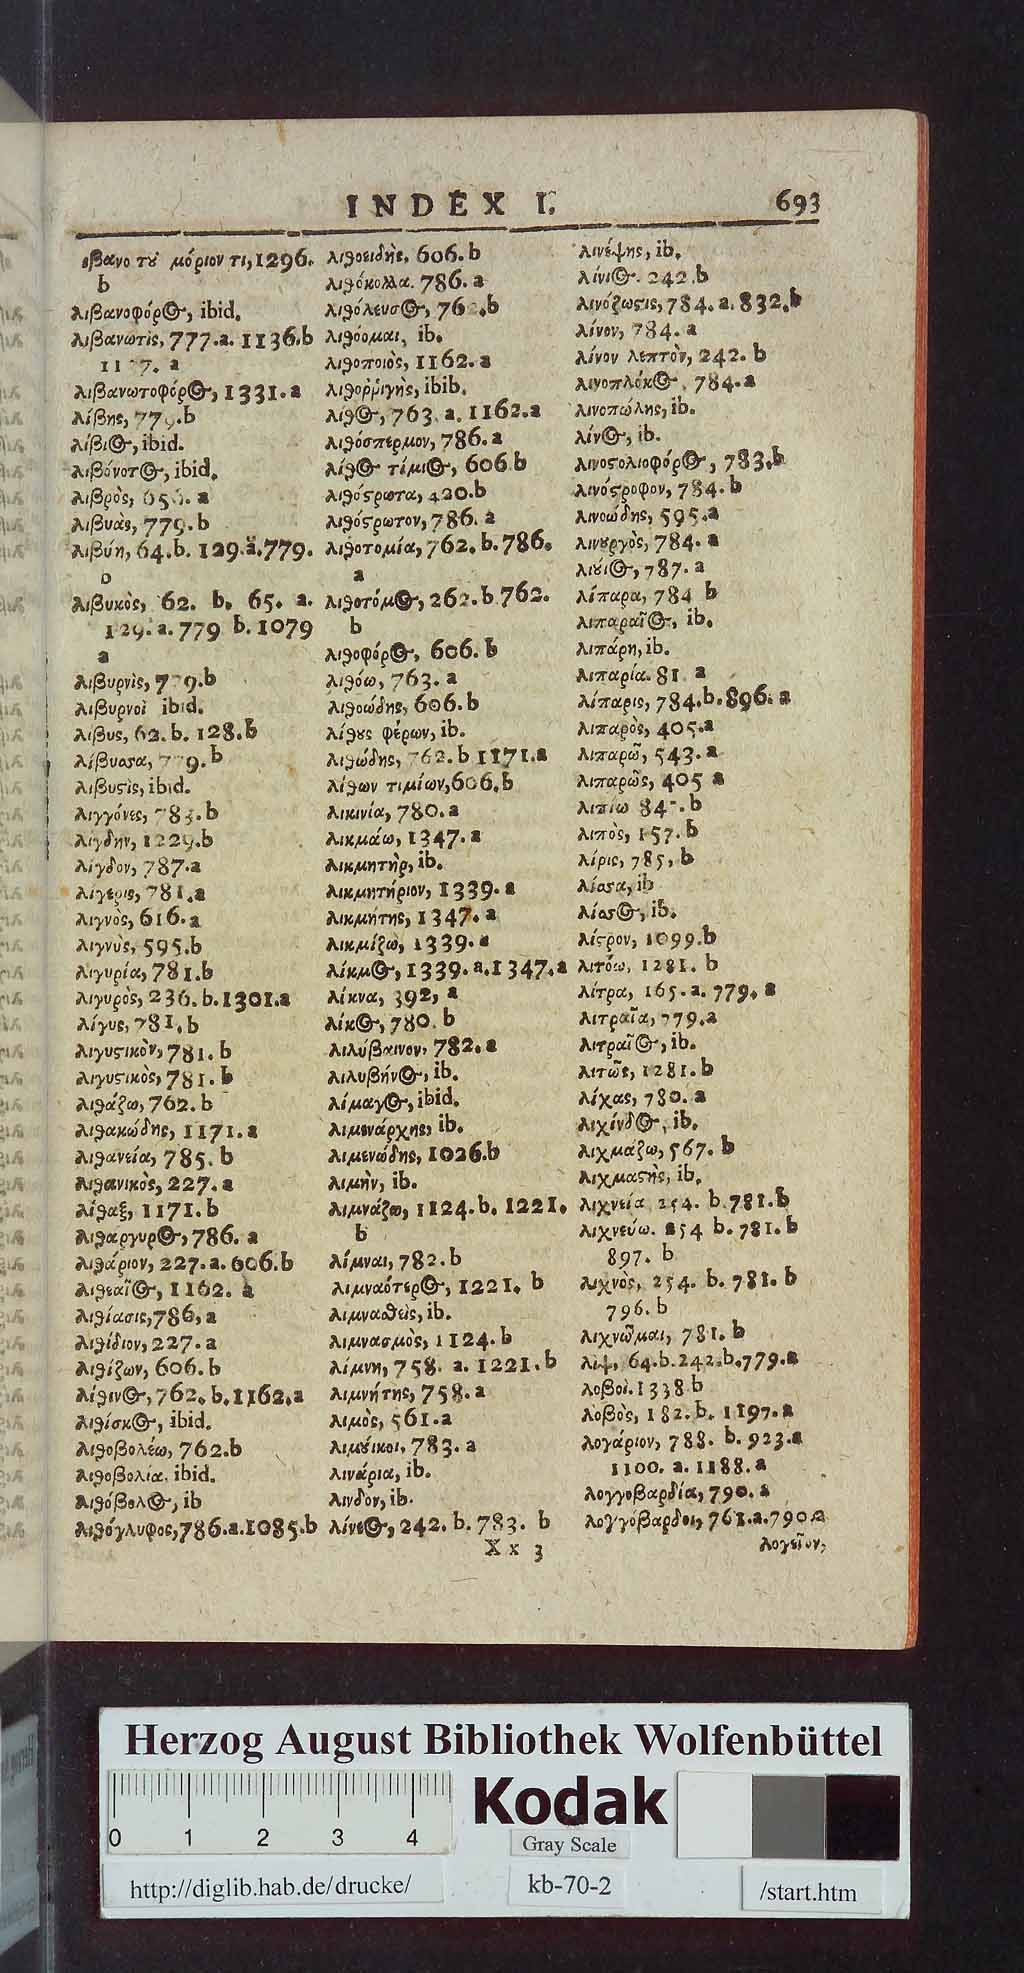 INDEX I. 693
μόριον τι, 1296.
b
λιβανοφόρ⊙, ibid.
λιβανωτὶς, 777.a. 1136.b
a
λιβανωτοφόρ⊙, 1331.a
λίβης, 779.b
λίβι⊙, ibid.
λιβόνοτ⊙, ibid.
λιβρὸς, a
λιβυὰς, 779.b
λιβύη, 64.b. 129.a.779.
b
λιβυκὸς, 62. b. 65. a.
129. a. 779 b. 1079
a
λιβυρνὶς, 779.b
λιβυρνοὶ ibid.
λίβυς, 62. b. 128.b
λίβυσσα, 779.b
λιβυστὶς, ibid.
λιγγόνες, 783.b
λίγδην, 1229.b
λίγδον, 787.a
λίγερις, 781.a
λιγνὸς, 616.a
λιγνὺς, 595.b
λιγυρία, 781.b
λιγυρὸς, 236. b. 1301.a
λίγυς, 781.b
λιγυστικὸν, 781. b
λιγυστικὸς, 781. b
λιθάζω, 762. b
λιθακώδης, 1171. a
λιθανεία, 785. b
λιθανικὸς, 227. a
λίθαξ, 1171. b
λιθάργυρ⊙, 786. a
λιθάριον, 227. a. 606.b
λιθεαῖ⊙, 1162. a
λιθίασις, 786, a
λιθίδιον, 227. a
λιθίζων, 606. b
λίθιν⊙, 762. b. 1162.a
λιθίσκ⊙, ibid.
λιθοβολέω, 762.b
λιθοβολία. ibid.
λιθόβολ⊙, ib
λιθόγλυφος, 786.a.1085.b
λιθοειδὴς, 606. b
λιθόκολλα. 786. a
λιθόλευσ⊙, b
λιθόομαι, ib.
λιθοποιὸς, 1162. a
λιθοῤῥιγὴς, ibib.
λίθ⊙, 763. a. 1162.a
λιθόσπερμον, 786. a
λίθ⊙ τίμι⊙, 606.b
λιθόστρωτα, 420.b
λιθόστρωτον, 786. a
λιθοτομία, 762. b. 786.
a
λιθοτόμ⊙, 262. b. 762.
b
λιθοφόρ⊙, 606. b
λιθόω, 763. a
λιθοώδης, 606.b
λίθους φέρων, ib.
λιθώδης, 762. b 1171.a
λίθων τιμίων, 606.b
λικινία, 780. a
λικμάω, 1347. a
λικμητὴρ, ib.
λικμητήριον, 1339. a
λικμήτης, 1347. a
λικμίζω, 1339. a
λίκμ⊙, 1339. a. 1347.a
λίκνα, 392, a
λίκ⊙, 780. b
λιλύβαινον, 782. a
λιλυβήν⊙, ib.
λίμαγ⊙, ibid.
λιμενάρχης, ib.
λιμενώδης, 1026.b
λιμὴν, ib.
λιμνάζω, 1124. b. 1221.
b
λίμναι, 782. b
λιμναότερ⊙, 1221. b
λιμναθεὶς, ib.
λιμνασμὸς, 1124. b
λίμνη, 758. a. 1221. b
λιμνήτης, 758. a
λιμὸς, 561.a
λιμούικοι, 783. a
λινάρια, ib.
λινδον, ib.
λίνε⊙, 242. b. 783. b
λινέψης, ib.
λίνι⊙. 242.b
λινόζωστις, 784. a. 832.b
λίνον, 784. a
λίνον λεπτὸν, 242. b
λινοπλόκ⊙, 784. a
λινοπώλης, ib.
λίν⊙, ib.
λινοστολιοφόρ⊙, 783.b
λινόστροφον, 784. b
λινοώδης, 595.a
λινουργὸς, 784. a
λιούι⊙, 787. a
λίπαρα, 784 b
λιπαραῖ⊙, ib.
λιπάρη, ib.
λιπαρία. 81. a
λίπαρις, 784. b. 896. a
λιπαρὸς, 405.a
λιπαρῶ, 543. a
λιπαρῶς, 405 a
λιπὸς, 157. b
λίρις, 785, b
λίσσα, ib
λίσσ⊙, ib.
λίστρον, 1099.b
λιτόω, 1281. b
λίτρα, 165. a. 779. a
λιτραῖα, 779.a
λιτραῖ⊙, ib.
λιτῶς, 1281. b
λίχας, 780. a
λιχίνδ⊙, ib.
λιχμάζω, 567. b
λιχμαστὴς, ib.
λιχνεία 254. b. 781.b
λιχνεύω. 254 b. 781. b
897. b
λιχνὸς, 254. b. 781. b
796. b
λιχνῶμαι, 781. b
λὶψ, 64.b. 242.b. 779.a
λοβοὶ. 1338.b
λοβὸς, 182. b. 1197. a
λογάριον, 788. b. 923.a
1100. a. 1188. a
λογγοβαρδία, 790. a
λογγόβαρδοι, 761.a.790.a
Xx 3 λογεῖον,
Herzog August Bibliothek Wolfenbüttel
0 1 2 3 4
Kodak
Gray Scale
http://diglib.hab.de/drucke/
kb-70-2
/start.htm